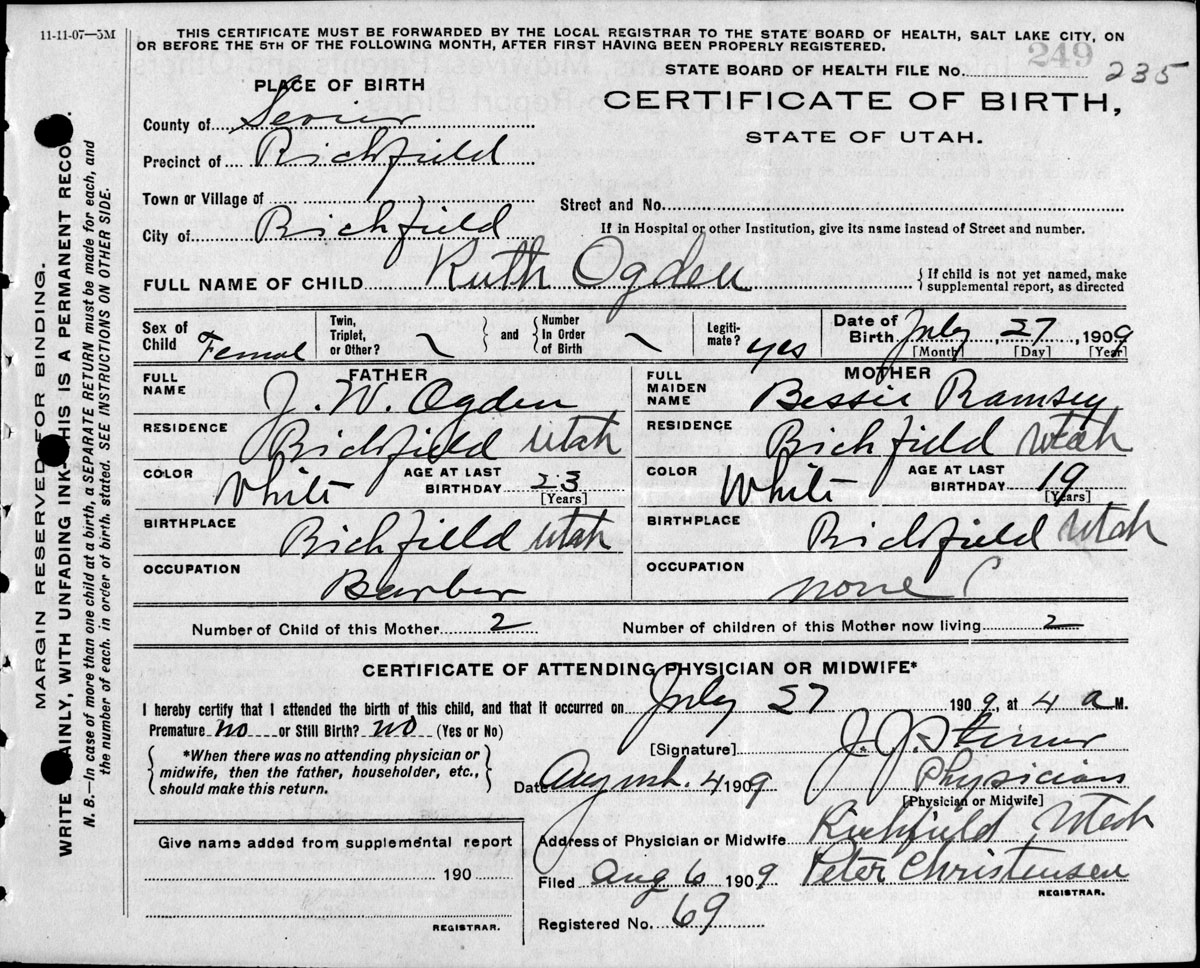 11-11-07—5M
THIS CERTIFICATE MUST BE FORWARDED BY THE LOCAL REGISTRAR TO THE STATE BOARD OF HEALTH, SALT LAKE CITY, ON
OR BEFORE THE 5TH OF THE FOLLOWING MONTH, AFTER FIRST HAVING BEEN PROPERLY REGISTERED.
249
STATE BOARD OF HEALTH FILE No. 235
PLACE OF BIRTH
CERTIFICATE OF BIRTH,
STATE OF UTAH.
County of Sevier
Precinct of Richfield
Town or Village of
Street and No.
City of Richfield
If in Hospital or other Institution, give its name instead of Street and number.
FULL NAME OF CHILD Ruth Ogden
{If child is not yet named, make
supplemental report, as directed
Sex of Child Female
Twin, Triplet, or Other?
and
Number In Order of Birth
Legiti-mate? yes
Date of Birth July, 27, 1909
[Month] [Day] [Year]
FATHER
FULL NAME J. W. Ogden
RESIDENCE Richfield Utah
COLOR White
AGE AT LAST BIRTHDAY 23
[Years]
BIRTHPLACE Richfield Utah
OCCUPATION Barber
MOTHER
FULL MAIDEN NAME Bessie Ramsey
RESIDENCE Richfield Utah
COLOR White
AGE AT LAST BIRTHDAY 19
[Years]
BIRTHPLACE Richfield Utah
OCCUPATION none
Number of Child of this Mother 2
Number of children of this Mother now living 2
CERTIFICATE OF ATTENDING PHYSICIAN OR MIDWIFE*
I hereby certify that I attended the birth of this child, and that it occurred on July 27 1909, at 4 a M.
Premature no or Still Birth? no (Yes or No)
*When there was no attending physician or
midwife, then the father, householder, etc.,
should make this return.
[Signature] J. J. Steiner
Physician
[Physician or Midwife]
Date August. 4 1909
Address of Physician or Midwife Richfield Utah
Filed Aug 6 1909 Peter Christensen
REGISTRAR.
Registered No. 69
Give name added from supplemental report
190
REGISTRAR.
MARGIN RESERVED FOR BINDING.
WRITE AINLY, WITH UNFADING INK— HIS IS A PERMANENT RECO .
N. B.—In case of more than one child at a birth, a SEPARATE RETURN must be made for each, and
the number of each, in order of birth, stated. SEE INSTRUCTIONS ON OTHER SIDE.